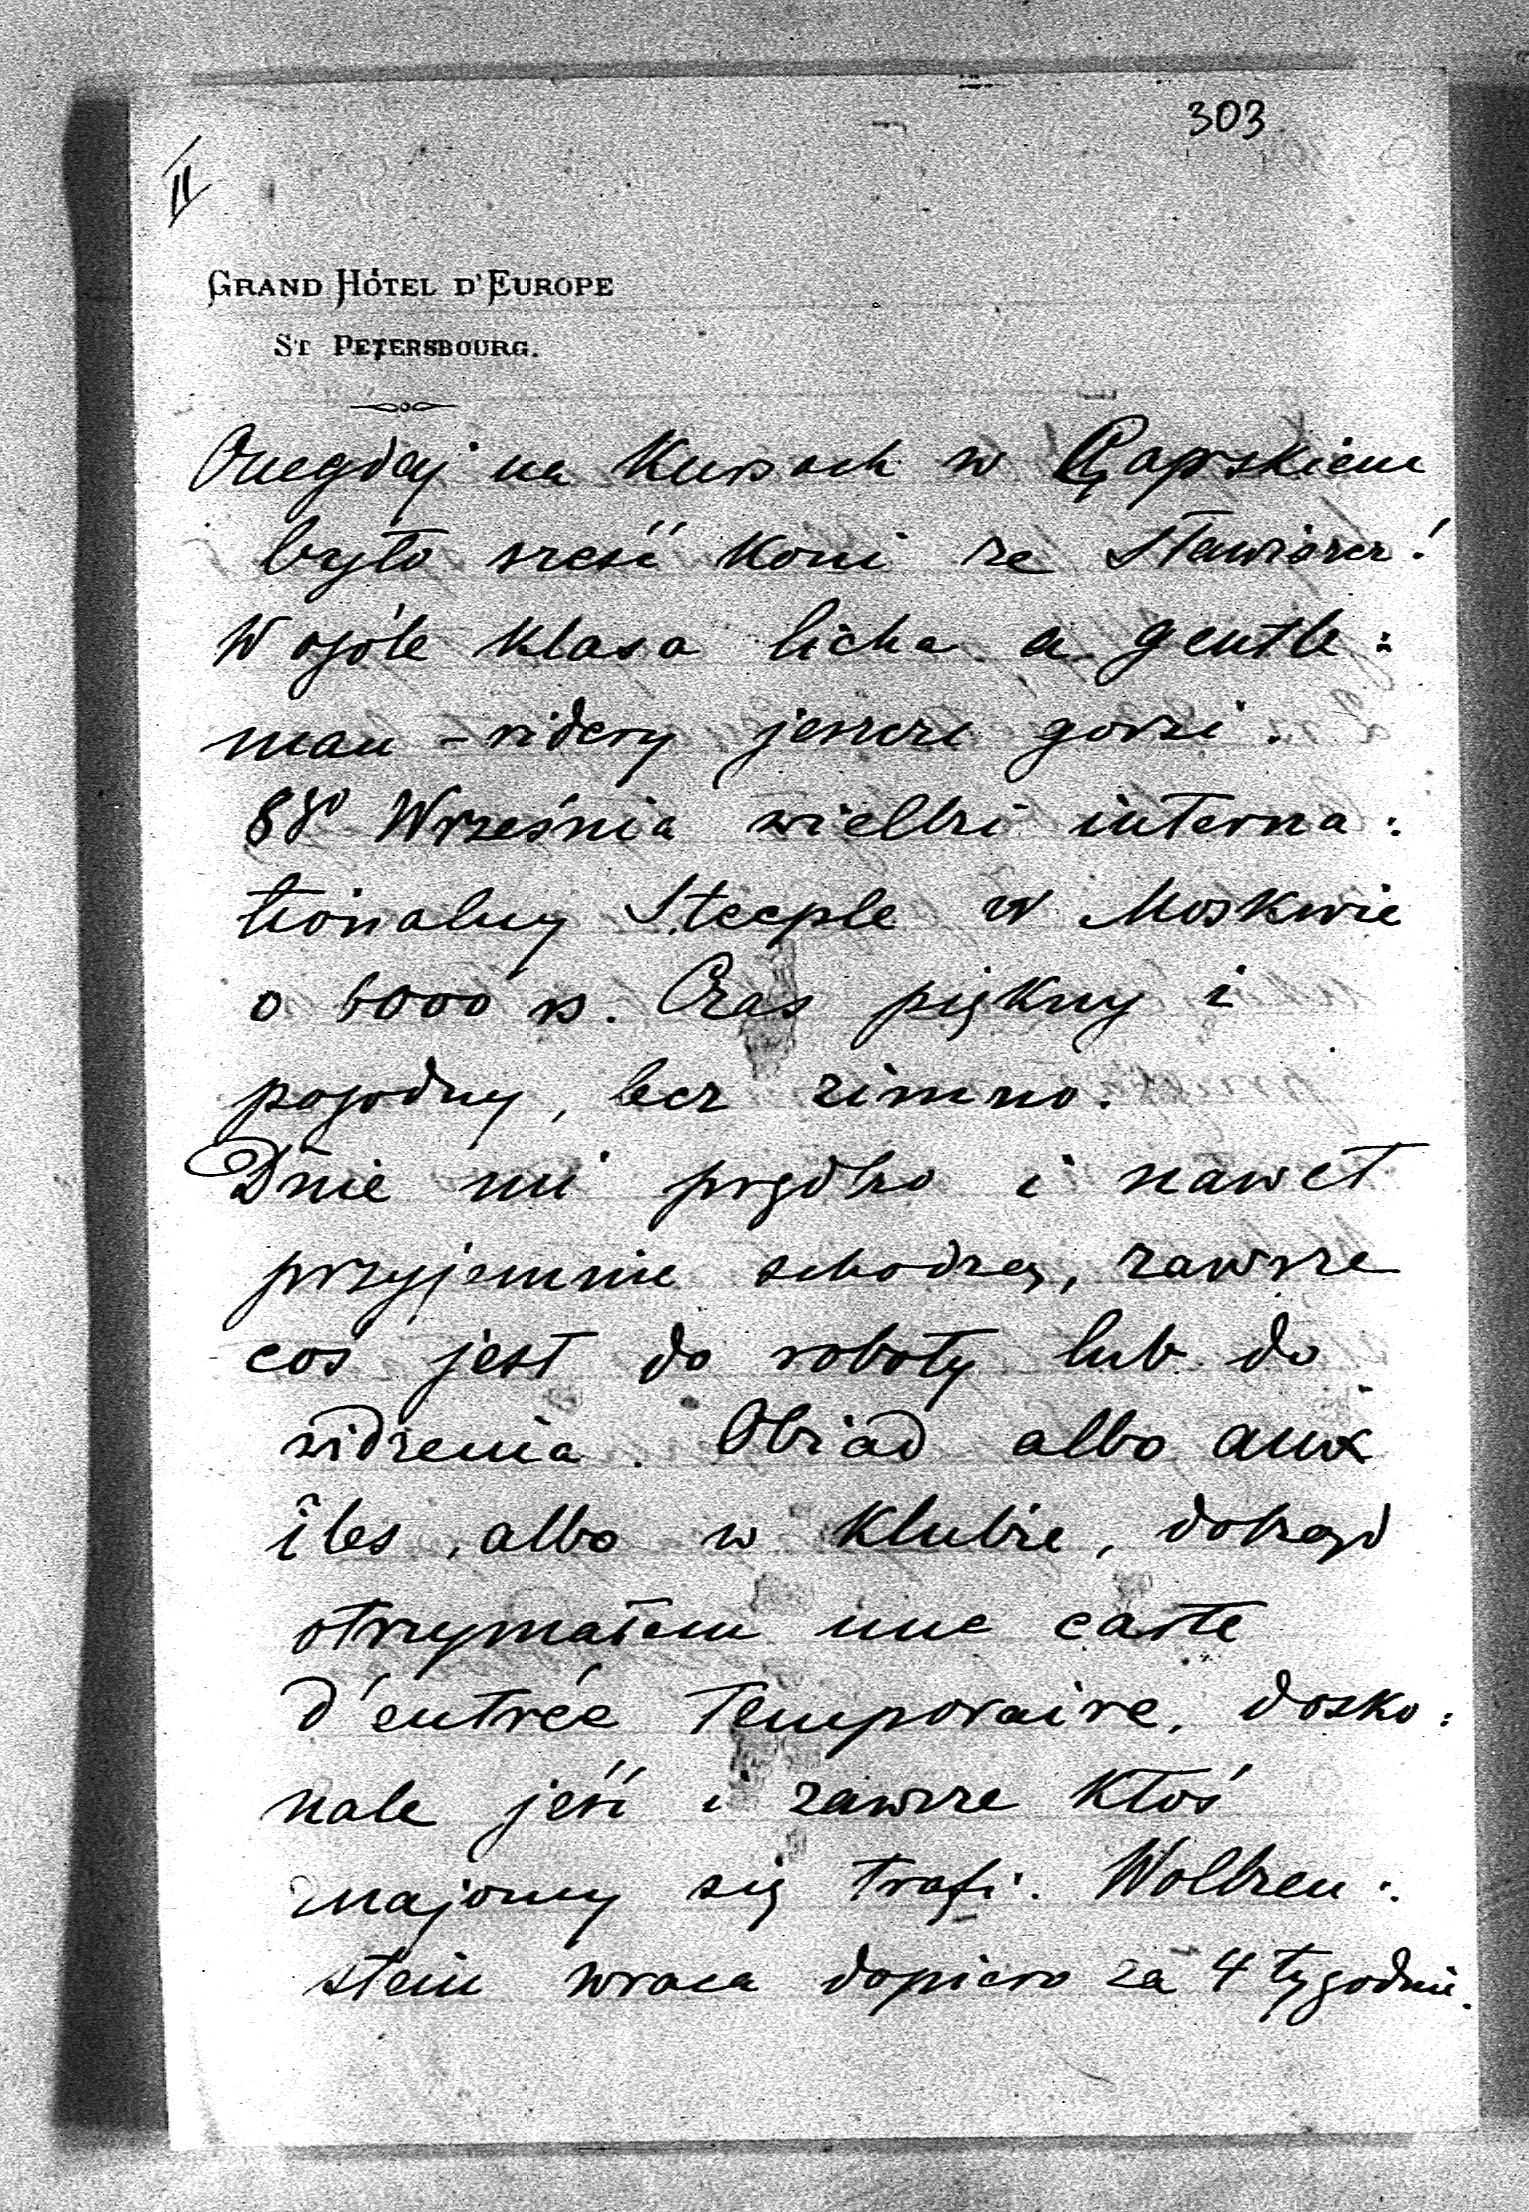 303
II
GRAND HÔTEL D'EUROPE
ST PETERSBOURG.
Onegdaj na Kursach w
było sześć koni ze Stawiszcz!
W ogóle klasa licha a gentle:
man-ridery jeszcze gorsi.
8go Września wielki interna:
tionalny Steeple w Moskwie
o 6000 rs. Czas piękny i
pogodny, lecz zimno.
Dnie mi prędko i nawet
przyjemnie schodzą, zawsze
coś jest do roboty lub do
widzenia. Obiad albo aux
îles, albo w Klubie, dokąd
otrzymałem une carte
d'entrée temporaire, dosko:
nale jeść i zawsze ktoś
znajomy się trafi. Wolken:
stein wraca dopiero za 4 tygodnie.